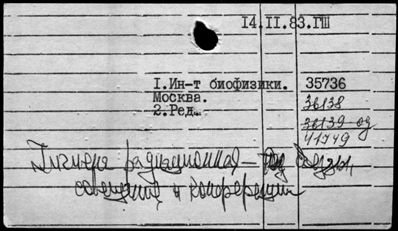 14.II.83.ГШ
I.Ин-т биофизики. 35736
Москва. 36138
2.Ред. 36139-од
41749
Гигиена радиационная - съезды,
совещания и конференции